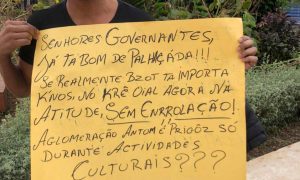 SENHORES GOVERNANTES,
JÁ TA BOM DE PALHAÇÁDA!!!
SE REALMENTE BZOT TA IMPORTA
KNOS, NO KRÊ OIAL AGORÁ NA
ATITUDE, SEM ENRROLAÇÃO!
AGLOMERAÇÃO ANTOM É PRIGÔZ SÓ
DURANTE ACTIVIDADES
CULTURAIS???